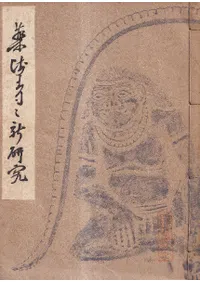 藥師寺之新研究